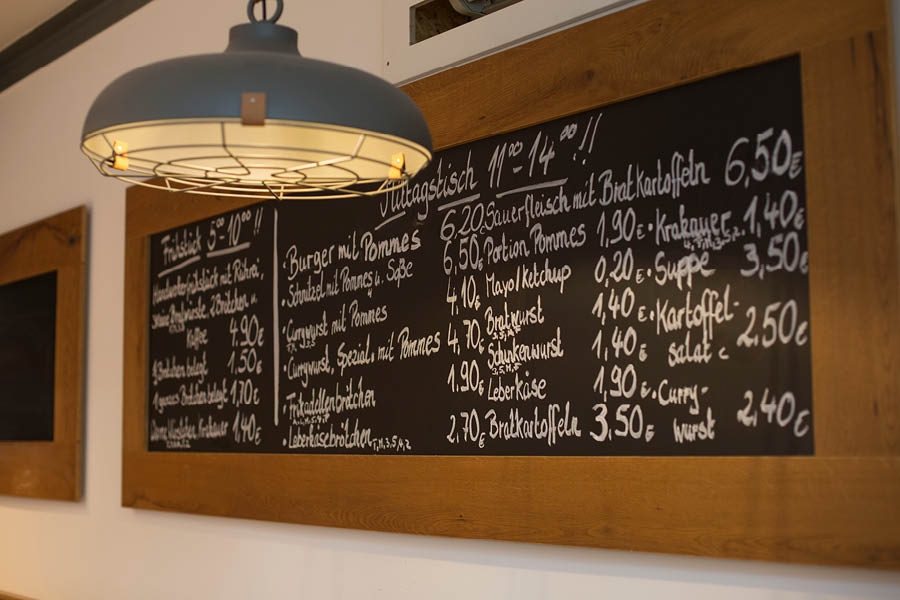 Frühstück 5⁰⁰-10⁰⁰!!
Handwerkerfrühstück mit Rührei,
2 Brötchen u.
Kaffee 4,90€
½ Brötchen belegt 1,50€
1 ganzes Brötchen belegt 1,70€
Krakauer 1,40€
Mittagstisch 11⁰⁰-14⁰⁰!!
Burger mit Pommes 6,20
Schnitzel mit Pommes u. Soße 6,50
Currywurst mit Pommes 4,10€
Currywurst, Spezial, mit Pommes 4,70
Frikadellenbrötchen 1,90€
Leberkäsebrötchen 2,70€
Sauerfleisch mit Bratkartoffeln 6,50€
Portion Pommes 1,90€
Mayo/Ketchup 0,20€
Bratwurst 1,40
Schinkenwurst 1,40€
Leberkäse 1,90€
Bratkartoffeln 3,50€
Krakauer 1,40€
Suppe 3,50€
Kartoffel-
salat 2,50€
Curry-
wurst 2,40€